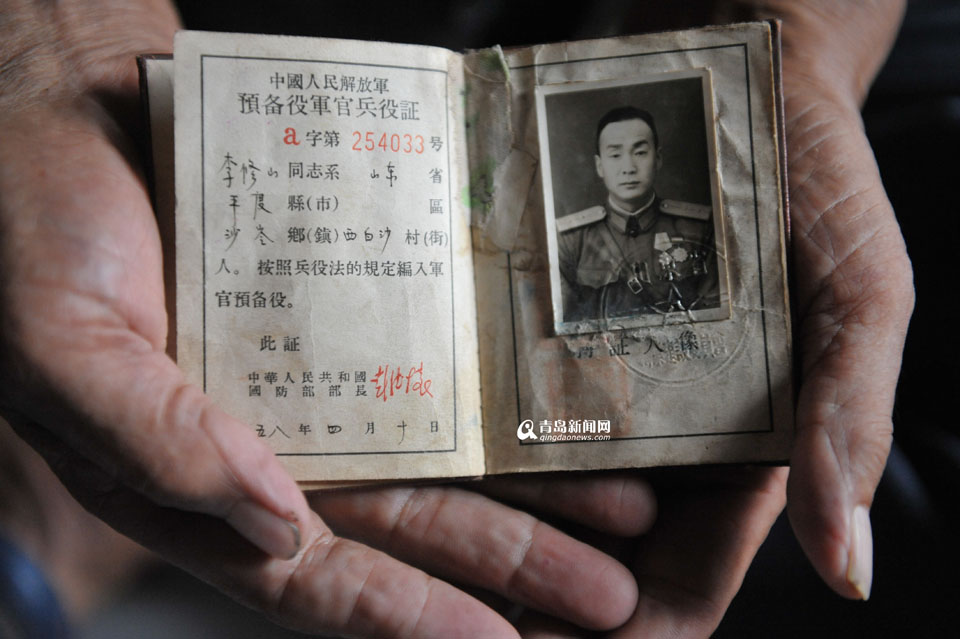 中國人民解放軍
預备役軍官兵役証
a字第 254033 号
李修山 同志系 山东 省
平度 縣(市) 區
沙岺 鄉(鎮) 西白沙 村(街)
人。按照兵役法的規定編入軍
官預备役。
此証
中華人民共和國
國防部部長 彭德懷
五八年四月十日
持証人像
青岛新闻网
qingdaonews.com